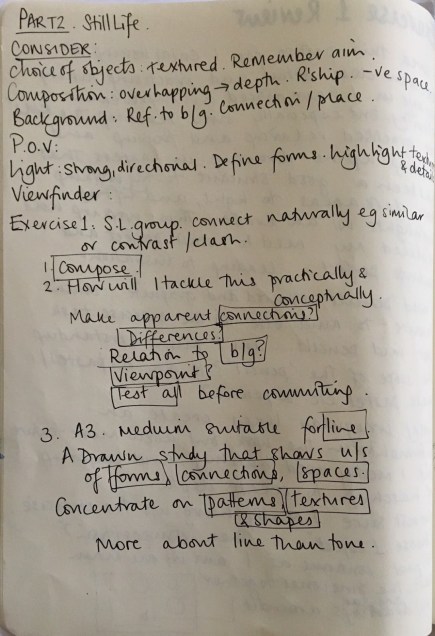 PART2. Still Life.
CONSIDER:
Choice of objects. Textured. Remember aim.
Composition: overhapping → depth. R'ship. -ve space.
Background: Ref. to b/g. Connection/place.
P.O.V:
Light: strong, directional. Define forms. highlight texture & detail
Viewfinder:
Exercise 1. S.L. group. connect naturally eg similar
or contrast/clash.
1. Compose.
2. How will I tackle this practically &
conceptually.
Make apparent connections?
Differences?
Relation to b/g?
Viewpoint?
Test all before committing.
3. A3. Medium suitable for line.
A Drawn study that shows u/s
of forms, connections, spaces.
Concentrate on patterns, textures
& shapes
More about line than tone.